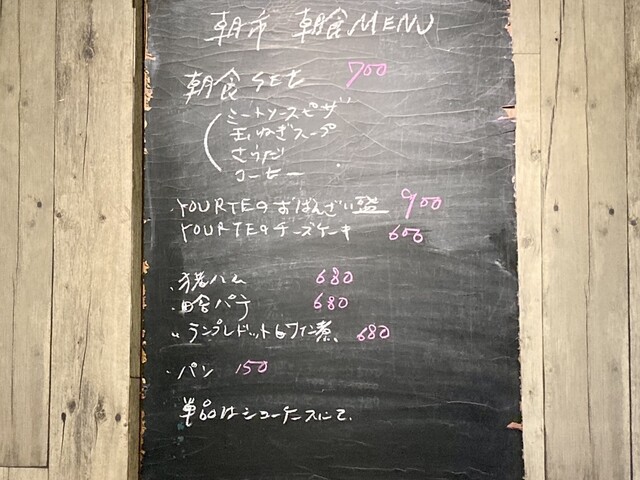 朝市 朝食MENU
朝食SET 700
ミートソースピザ
玉ねぎスープ
さらだ
コーヒー
・YOURTEのおばんざい盛 900
YOURTEのチーズケーキ 600
・猪ハム 680
・田舎パテ 680
・ランプレドット白ワイン煮 680
・パン 150
単品はショーケースにて。